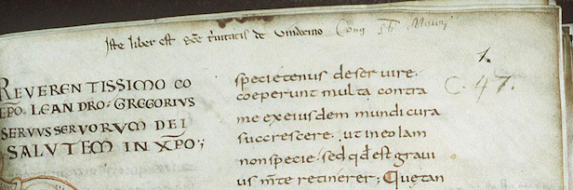 Iste liber est sce trinitatis de vindocino Cong. St. Mauri
1.
C. 47.
REVERENTISSIMO CO
EPO. LEANDRO. GREGORIVS
SERVVS SERVORVM DEI
SALVTEM IN XPO;
specie tenus deservire.
coeperunt multa contra
me ex eiusdem mundi cura
succrescere. ut in eo iam
non specie. sed qd est gravi
us mte retinerer; Que tan